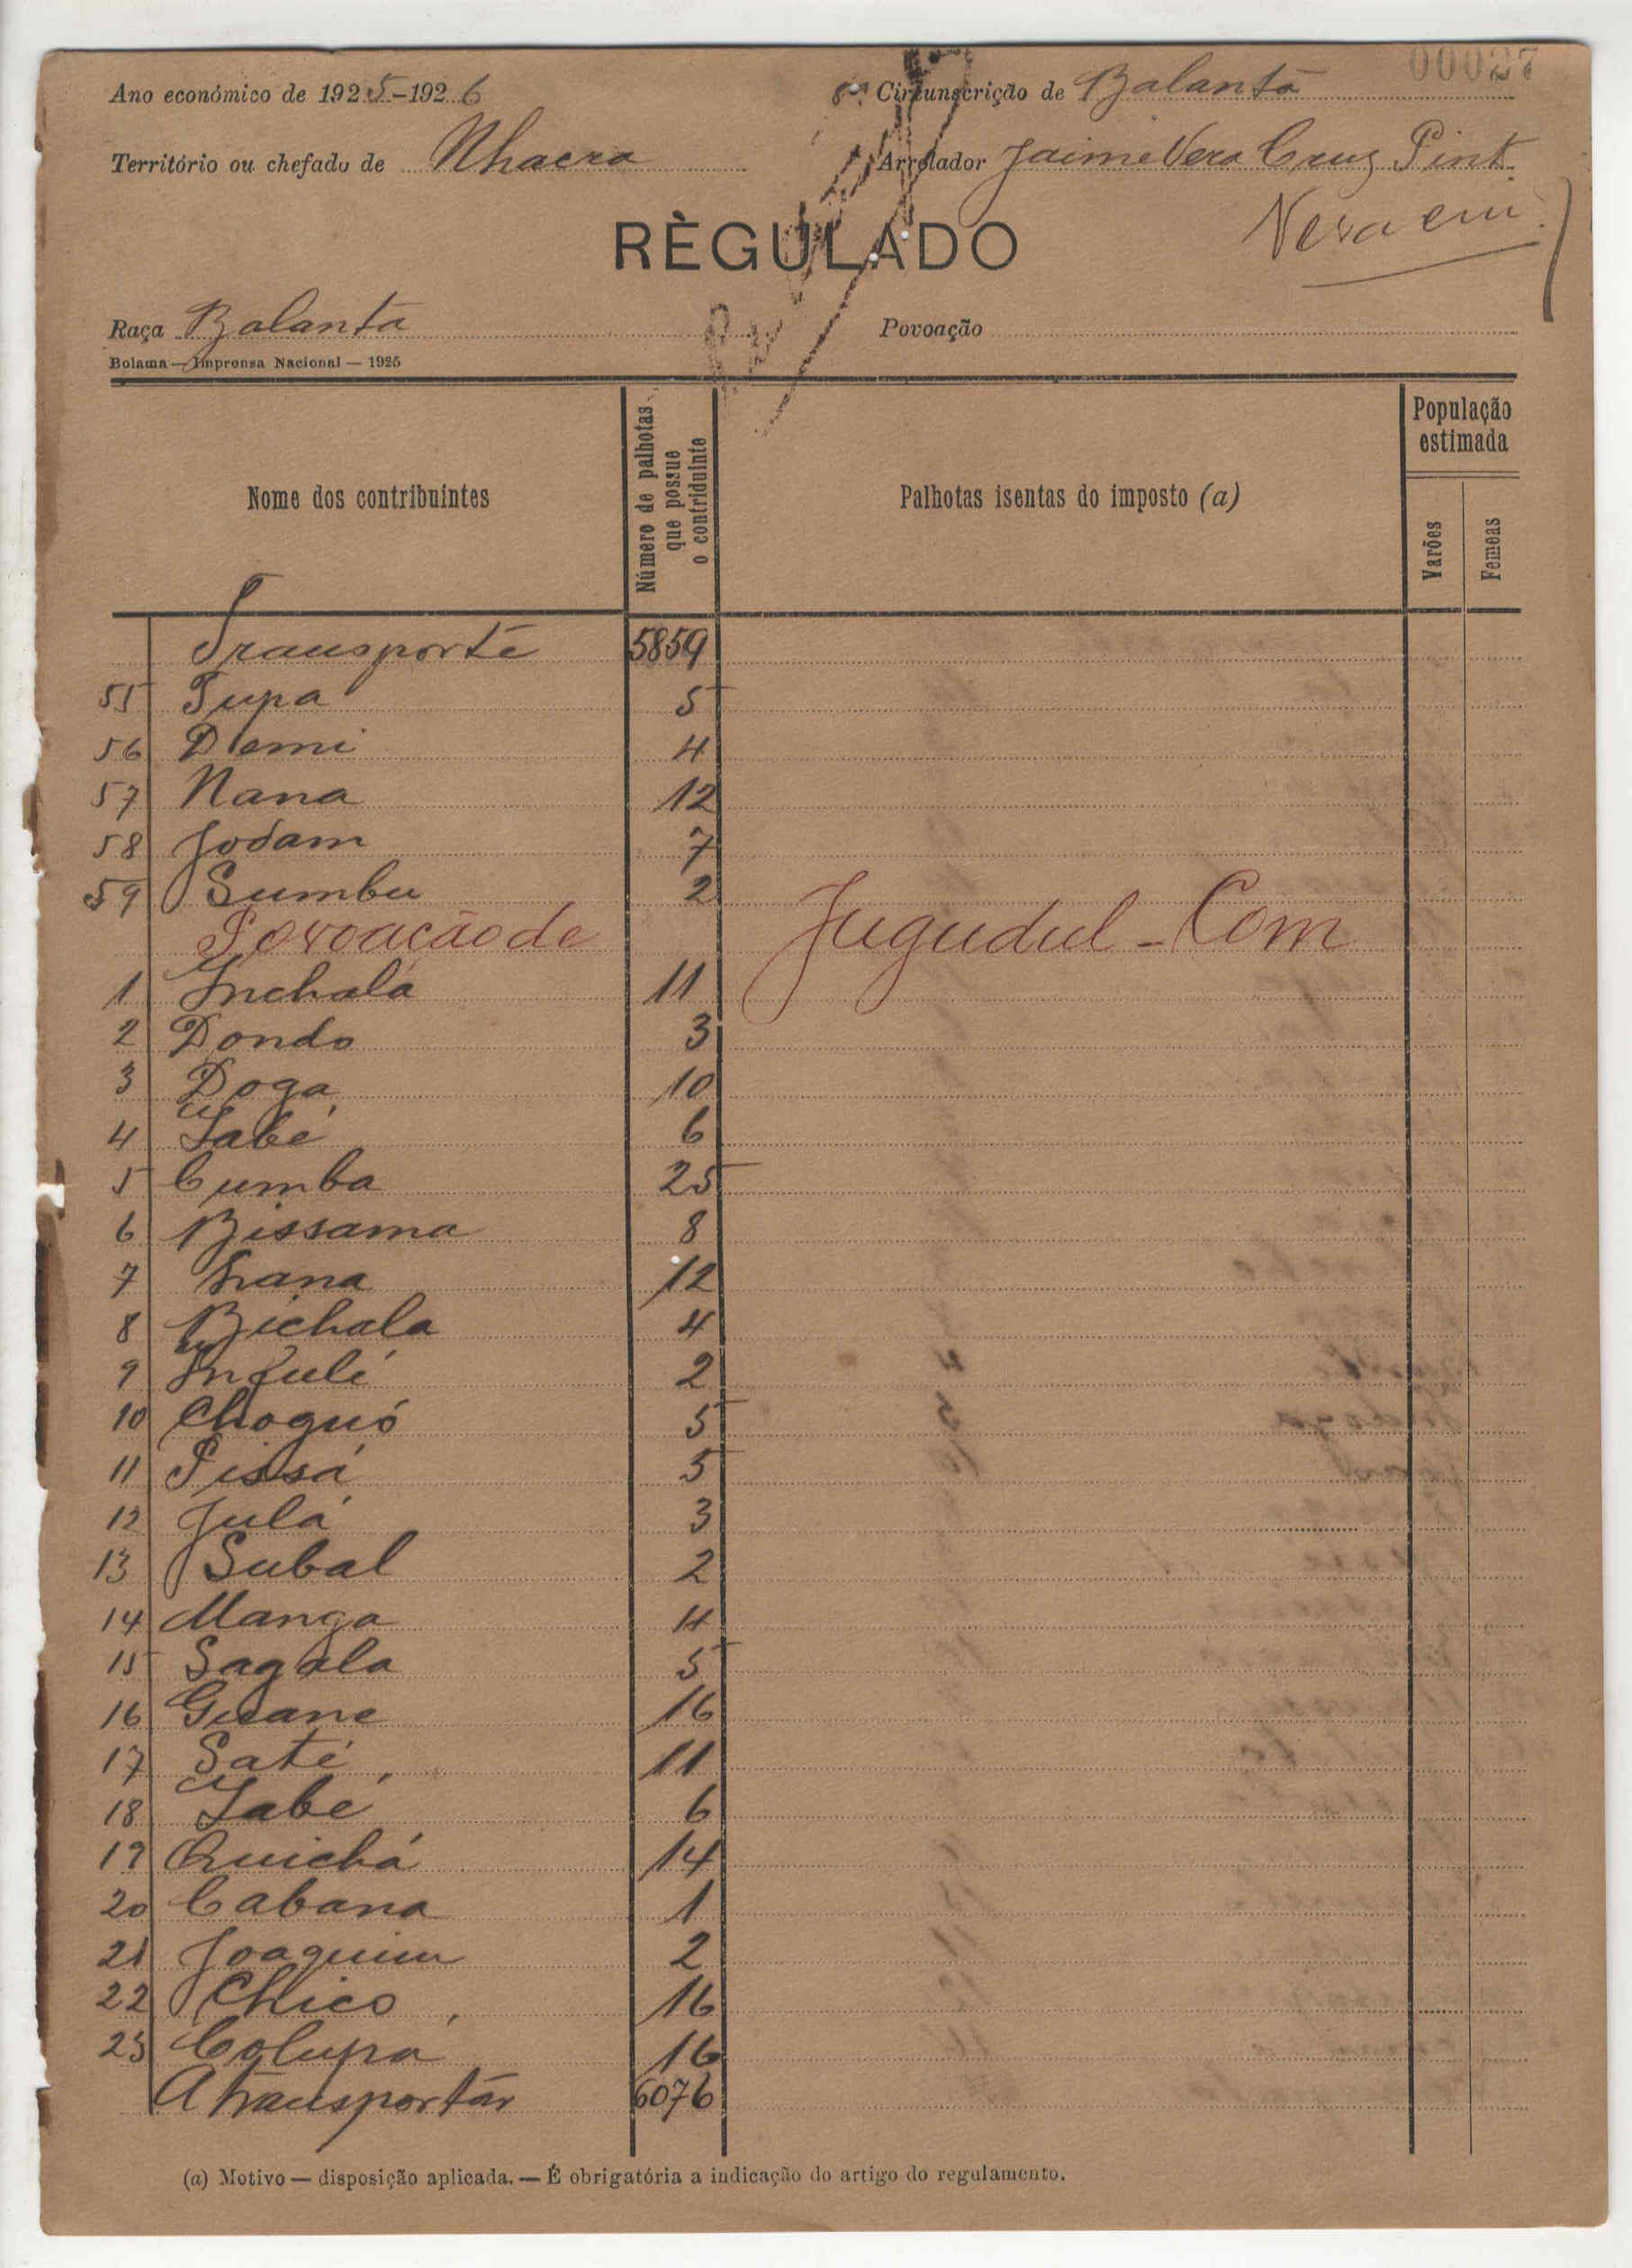 00027
Ano económico de 1925-1926
Circunscrição de Balanta
Território ou chefado de Nhacra
Arrolador Jaime Vera Cruz Pint
RÈGULADO
Raça Balanta
Povoação
Bolama — Imprensa Nacional — 1925
Nome dos contribuintes
Número de palhotas que possue o contriduinte
Palhotas isentas do imposto (a)
População estimada
Varões
Femeas
Transporte 5859
55 Tupa 5
56 Demi 4
57 Nana 12
58 Jodam 7
59 Sumbu 2
Povoação de Jugudul - Com
1 Inchalá 11
2 Dondo 3
3 Doga 10
4 Iabé 6
5 Cumba 25
6 Bissama 8
7 hana 12
8 Bichala 4
9 Infulé 2
10 Choguó 5
11 Pissá 5
12 Julá 3
13 Subal 2
14 Manga 4
15 Sagala 5
16 Guane 16
17 Saté 11
18 Iabé 6
19 Quichá 14
20 Cabana 1
21 Joaquim 2
22 Chico 16
23 Colupa 16
A transportar 6076
(a) Motivo — disposição aplicada. — É obrigatória a indicação do artigo do regulamento.